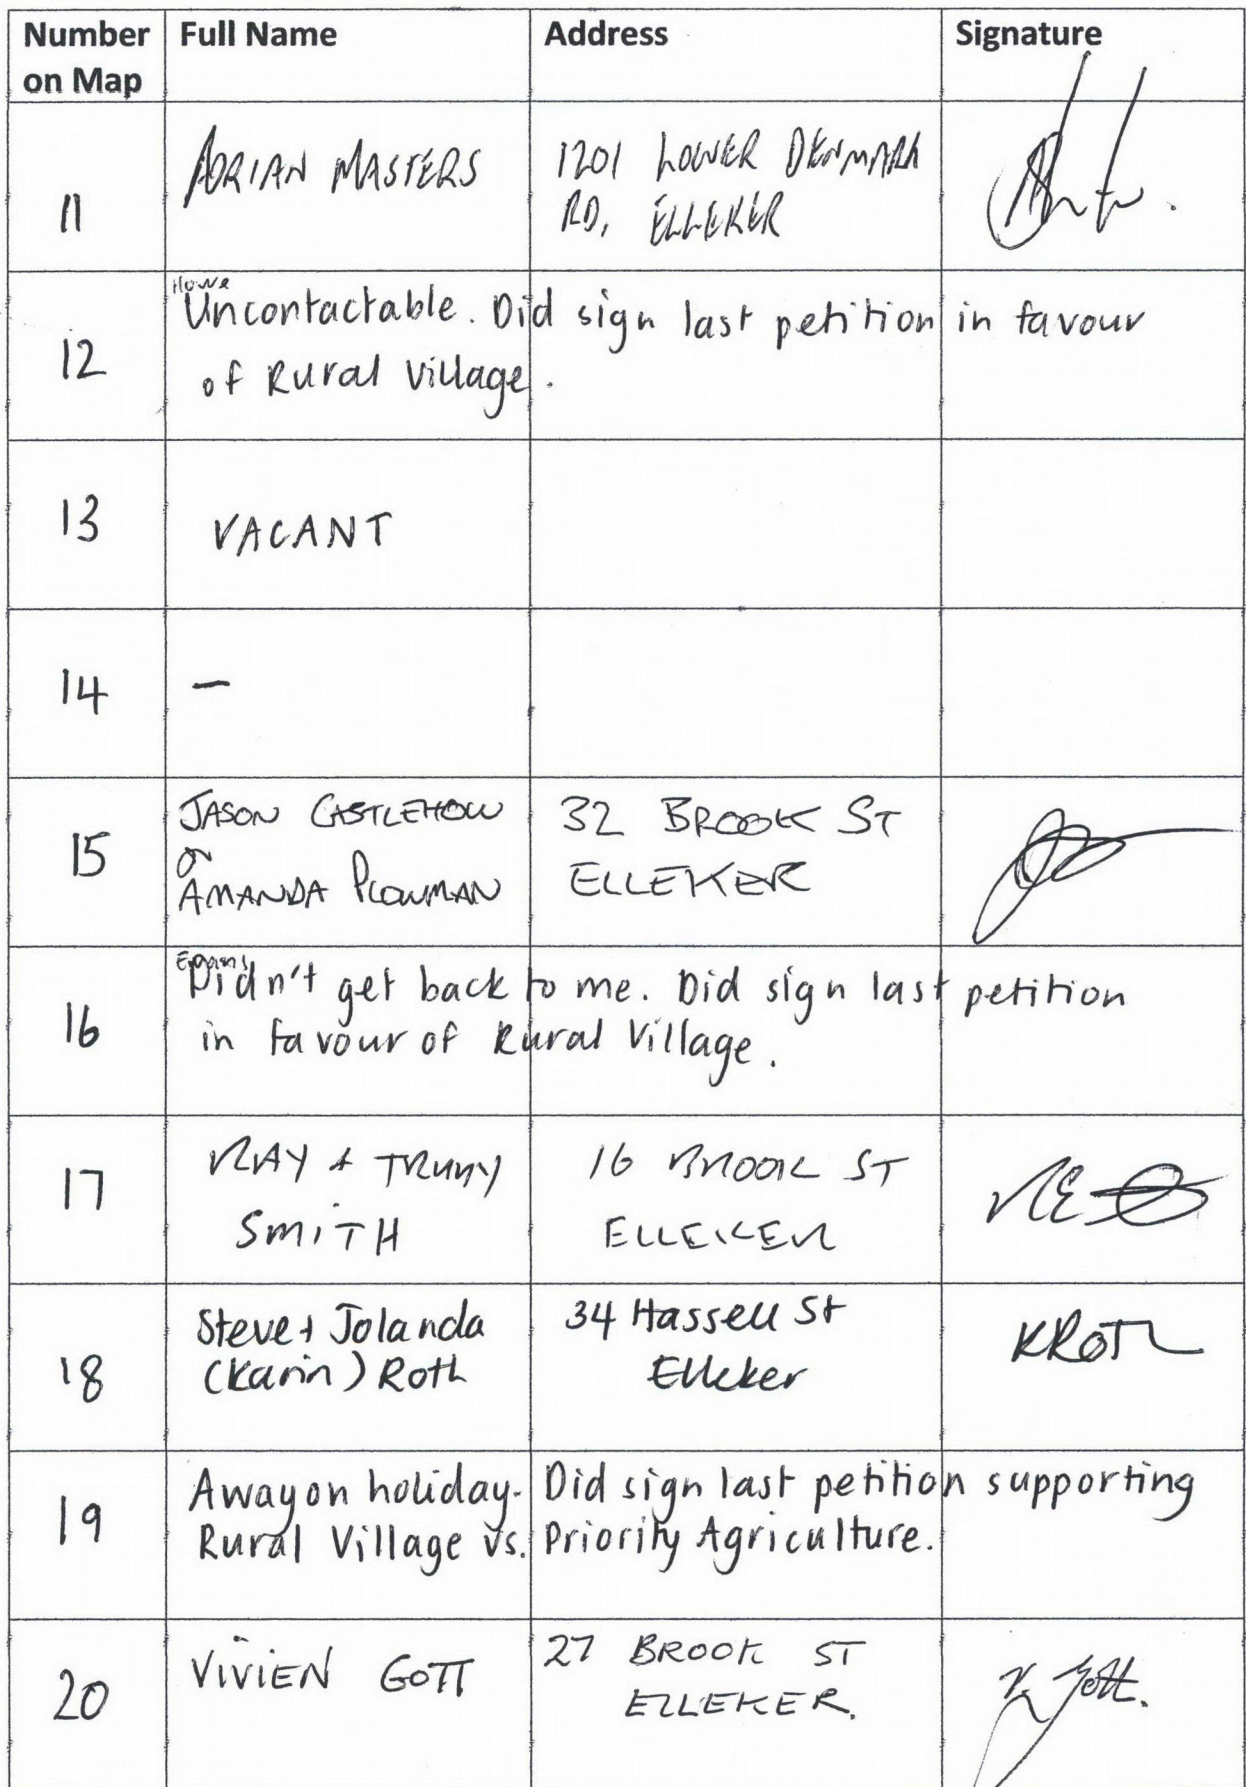 Number on Map Full Name Address Signature
11 ADRIAN MASTERS 1201 LOWER DENMARK
RD, ELLEKER
Howe
12 Uncontactable. Did sign last petition in favour
of Rural Village.
13 VACANT
14 –
15 JASON CASTLEHOW 32 BROOK ST
&
AMANDA PLOWMAN ELLEKER
16 Didn't get back to me. Did sign last petition
in favour of Rural Village.
17 RAY & TRUDY 16 BROOK ST
SMITH ELLEKER
18 Steve + Jolanda 34 Hassell St KROTH
(Karin) Roth Elleker
19 Away on holiday. Did sign last petition supporting
Rural Village vs. Priority Agriculture.
20 VIVIEN GOTT 27 BROOK ST V Gott.
ELLEKER.